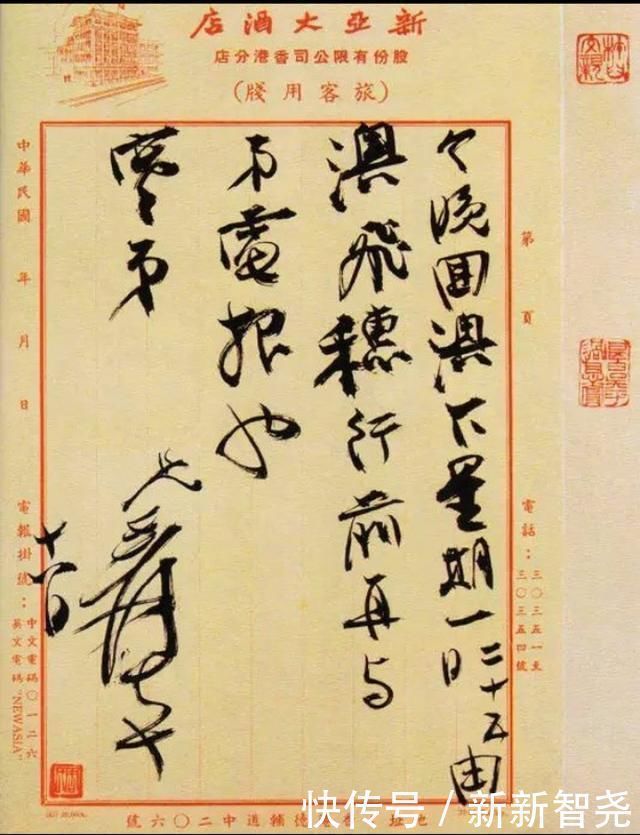 新亞大酒店
股份有限公司香港分店
(旅客用牋)
第 頁
電話:三〇三五一至
三〇三五四號
今晚囬澳下星期一二十五日由
澳飛穗行前再与
弟電報也
弟
兄爰
中華民國 年 月 日
電報掛號:中文電碼〇一三六
英文電碼"NEWASIA"
德輔道中二〇六號
快传号 / 新新智尧